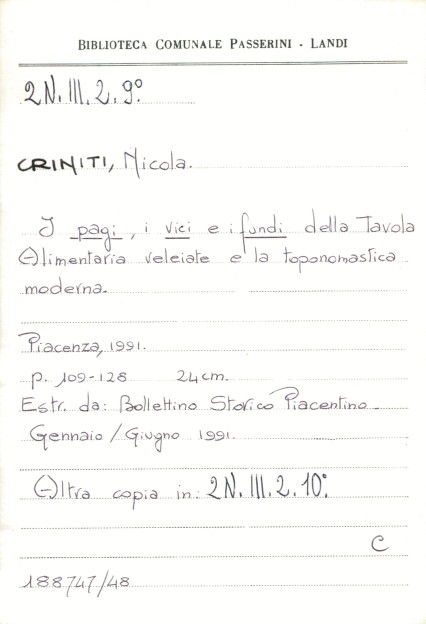 BIBLIOTECA COMUNALE PASSERINI - LANDI
2N. III. 2. 9º
CRINITI, Nicola.
I pagi, i vici e i fundi della Tavola
Alimentaria veleiate e la toponomastica
moderna.
Piacenza, 1991.
p. 109-128 24 cm.
Estr. da: Bollettino Storico Piacentino.
Gennaio / Giugno 1991.
Altra copia in: 2N. III. 2. 10º
C
188747/48